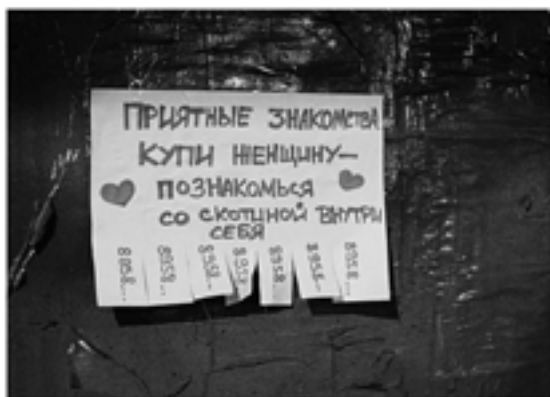 ПРИЯТНЫЕ ЗНАКОМСТВА
КУПИ ЖЕНЩИНУ—
ПОЗНАКОМЬСЯ
СО СКОТИНОЙ ВНУТРИ
СЕБЯ
8958...
8958...
8958...
8958...
8958...
8958...
8958...